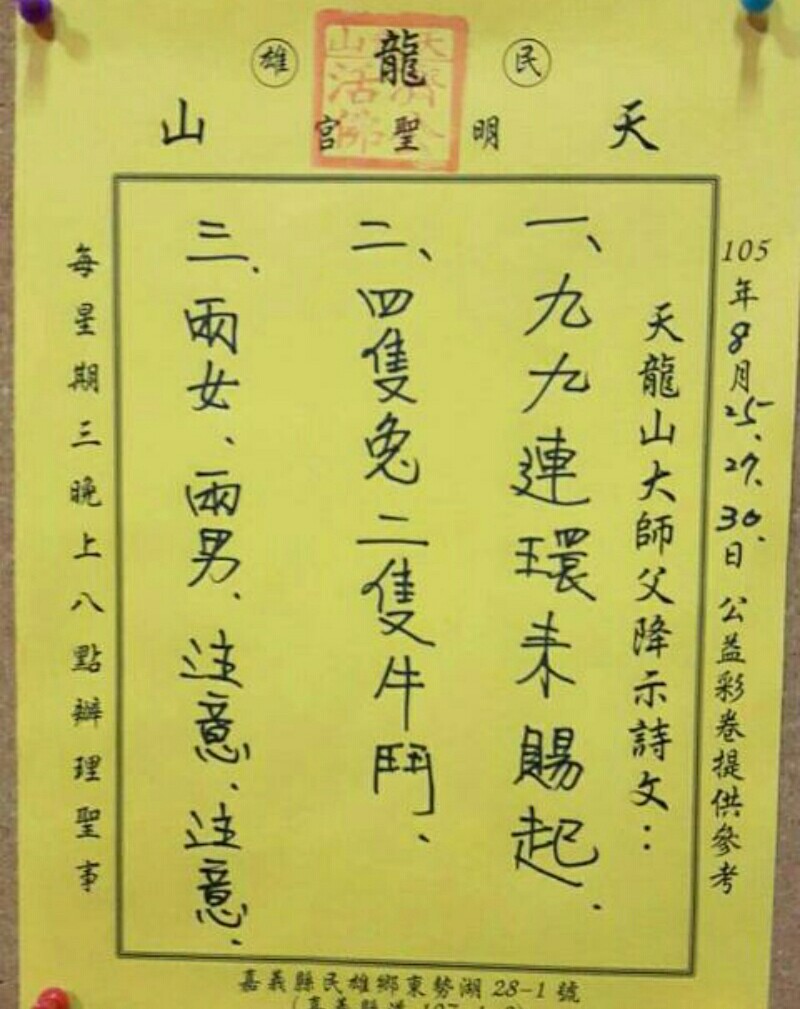 民雄
天龍山
明聖宮
105年8月25、27、30日 公益彩卷提供參考
天龍山大師父降示詩文：
一、九九連環耒賜起.
二、四隻兔二隻牛鬥、
三、兩女、兩男、注意、注意、
每星期三晚上八點辦理聖事
嘉義縣民雄鄉東勢湖28-1號